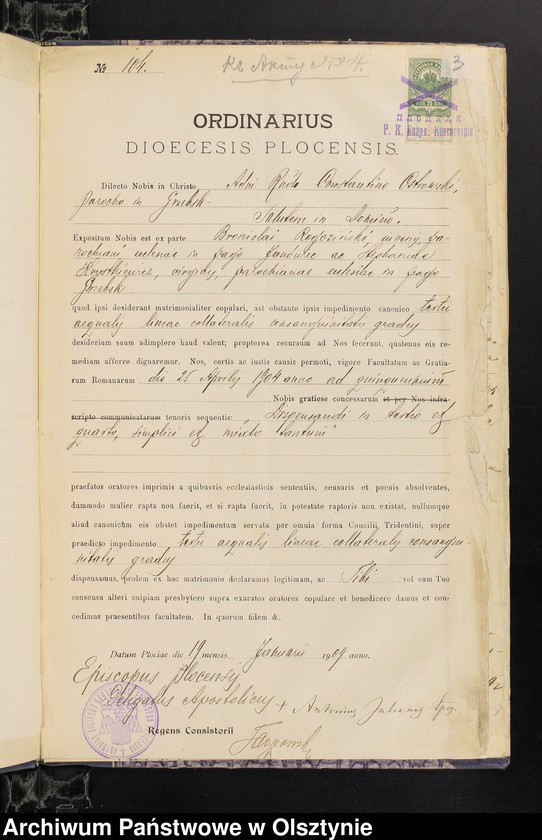 № 104.
3
Р. К. Епарх. Консисторія
ORDINARIUS
DIOECESIS PLOCENSIS.
Dilecto Nobis in Christo, Constantino Ostrowski,
parocho in Grzebsk
Salutem in Domino.
Expositum Nobis est ex parte Bronislai Rogoziński, juvenis, pa-
rochiani ecclesiae in pago Janowiec ac Stephaniae
virginis, parochianae ecclesiae in pago
Grzebsk
quod ipsi desiderant matrimonialiter copulari, ast obstante ipsis impedimento canonico tertii
aequalis lineae collateralis consanguinitatis gradus
desiderium suum adimplere haud valent; propterea recursum ad Nos fecerunt, quatenus eis re-
medium afferre dignaremur. Nos, certis ac iustis causis permoti, vigore Facultatum ac Gratia-
rum Romanarum die 25 Aprilis 1904 anno ad quinquennium
Nobis gratiose concessarum et per Nos infra-
scripto communicatarum tenoris sequentis: „Dispensandi in tertio et
quarto, simplici et mixto tantum"
praefatos oratores imprimis a quibusvis ecclesiasticis sententiis, censuris et poenis absolventes,
dummodo mulier rapta non fuerit, et si rapta fuerit, in potestate raptoris non existat, nullumque
aliud canonictm eis obstet impedimentum servata per omnia forma Concilii, Tridentini, super
praedicto impedimento tertii aequalis lineae collateralis consangui-
nitatis gradus
dispensamus, prolem ex hoc matrimonio declaramus legitimam, ac Tibi vel cum Tuo
consensu alteri cuipiam presbytero supra exaratos oratores copulare et benedicere damus et con-
cedimus praesentibus facultatem. In quorum fidem &.
Datum Plociae die 19 mensis Januarii 1909 anno.
Episcopus Plocensis
Delegatus Apostolicus + Antonius Julianus Epus.
Regens Consistorii
Archiwum Państwowe w Olsztynie